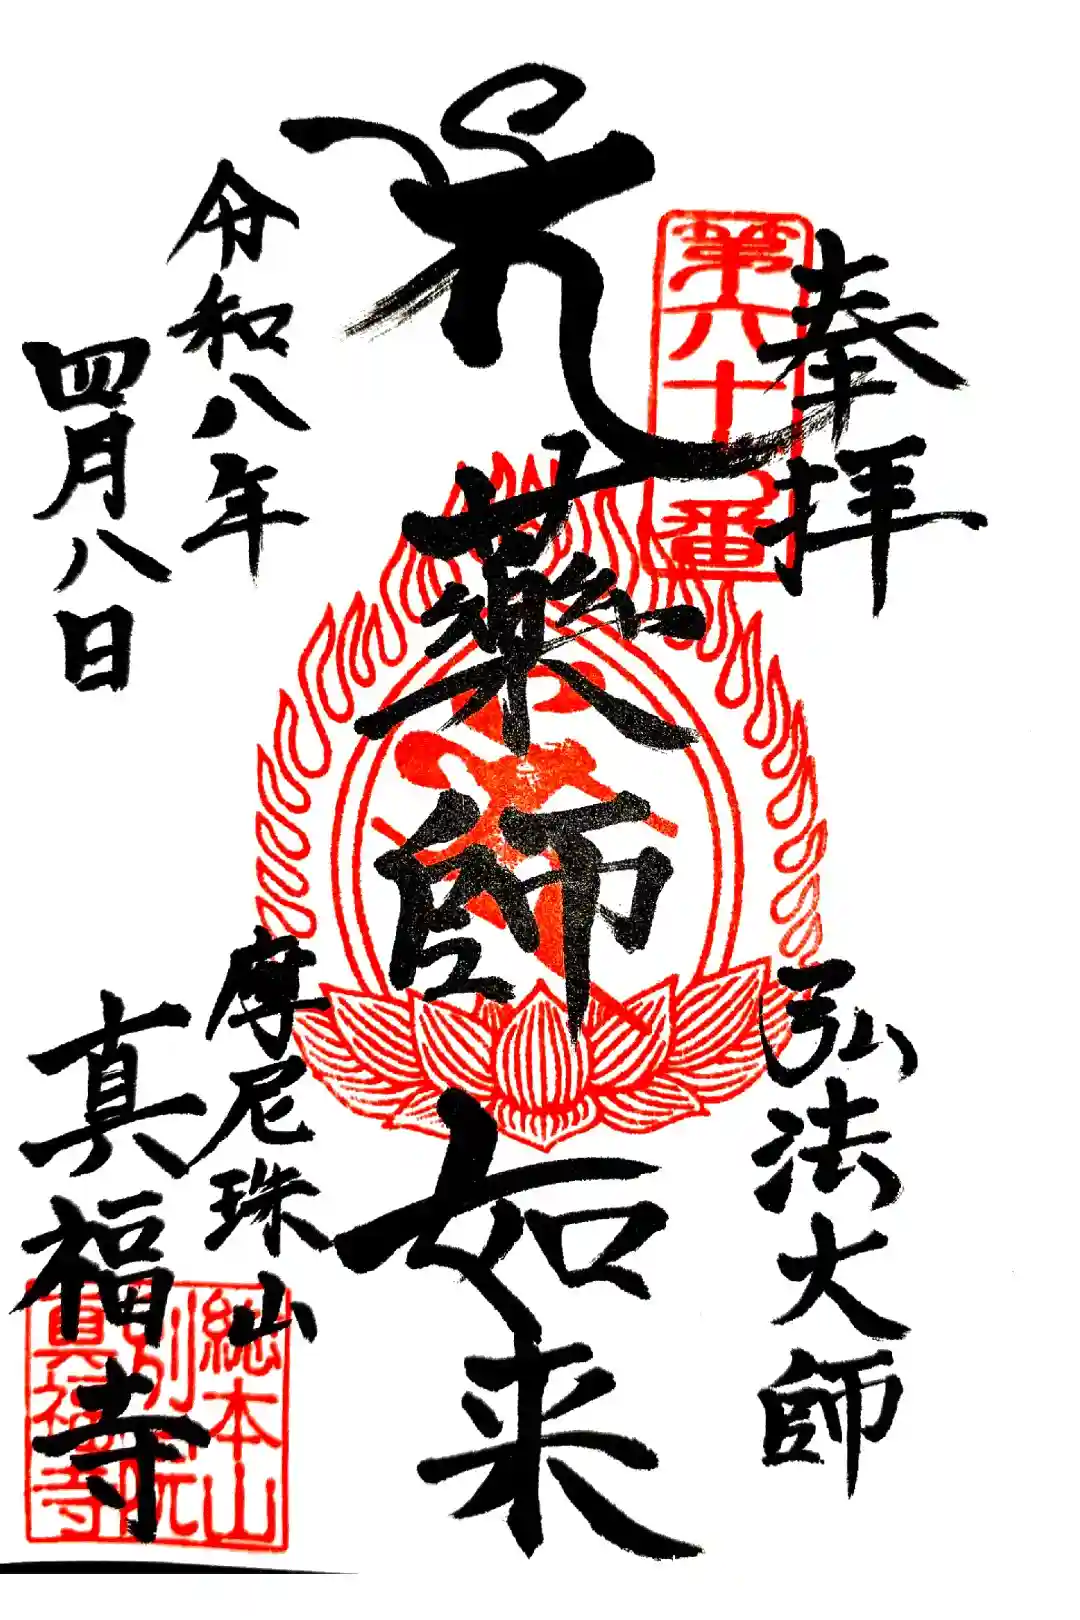 奉拝
弘法大師
薬師如来
摩尼珠山
真福寺
令和八年
四月八日
総本山
別院
真福寺